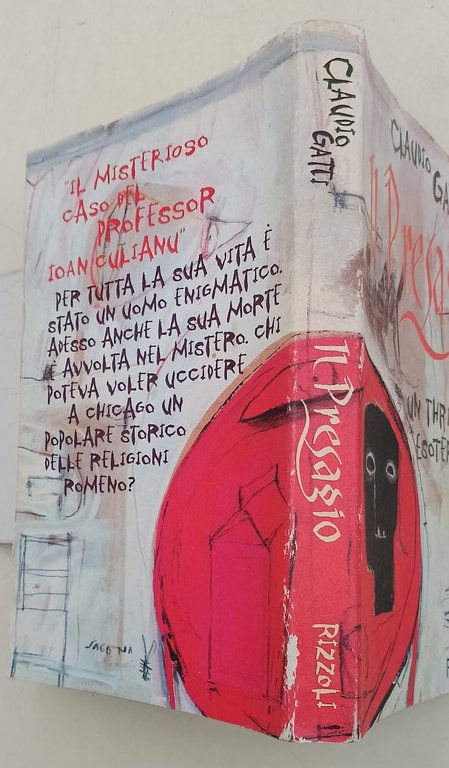 "IL MISTERIOSO
CASO DEL
PROFESSOR
IOAN CULIANU"
PER TUTTA LA SUA VITA È
STATO UN UOMO ENIGMATICO.
ADESSO ANCHE LA SUA MORTE
È AVVOLTA NEL MISTERO. CHI
POTEVA VOLER UCCIDERE
A CHICAGO UN
POPOLARE STORICO
DELLE RELIGIONI
ROMENO?
CLAUDIO
GATTI
Il Presagio
RIZZOLI
CLAUDIO GA
Il Presa
UN THR
ESOTER